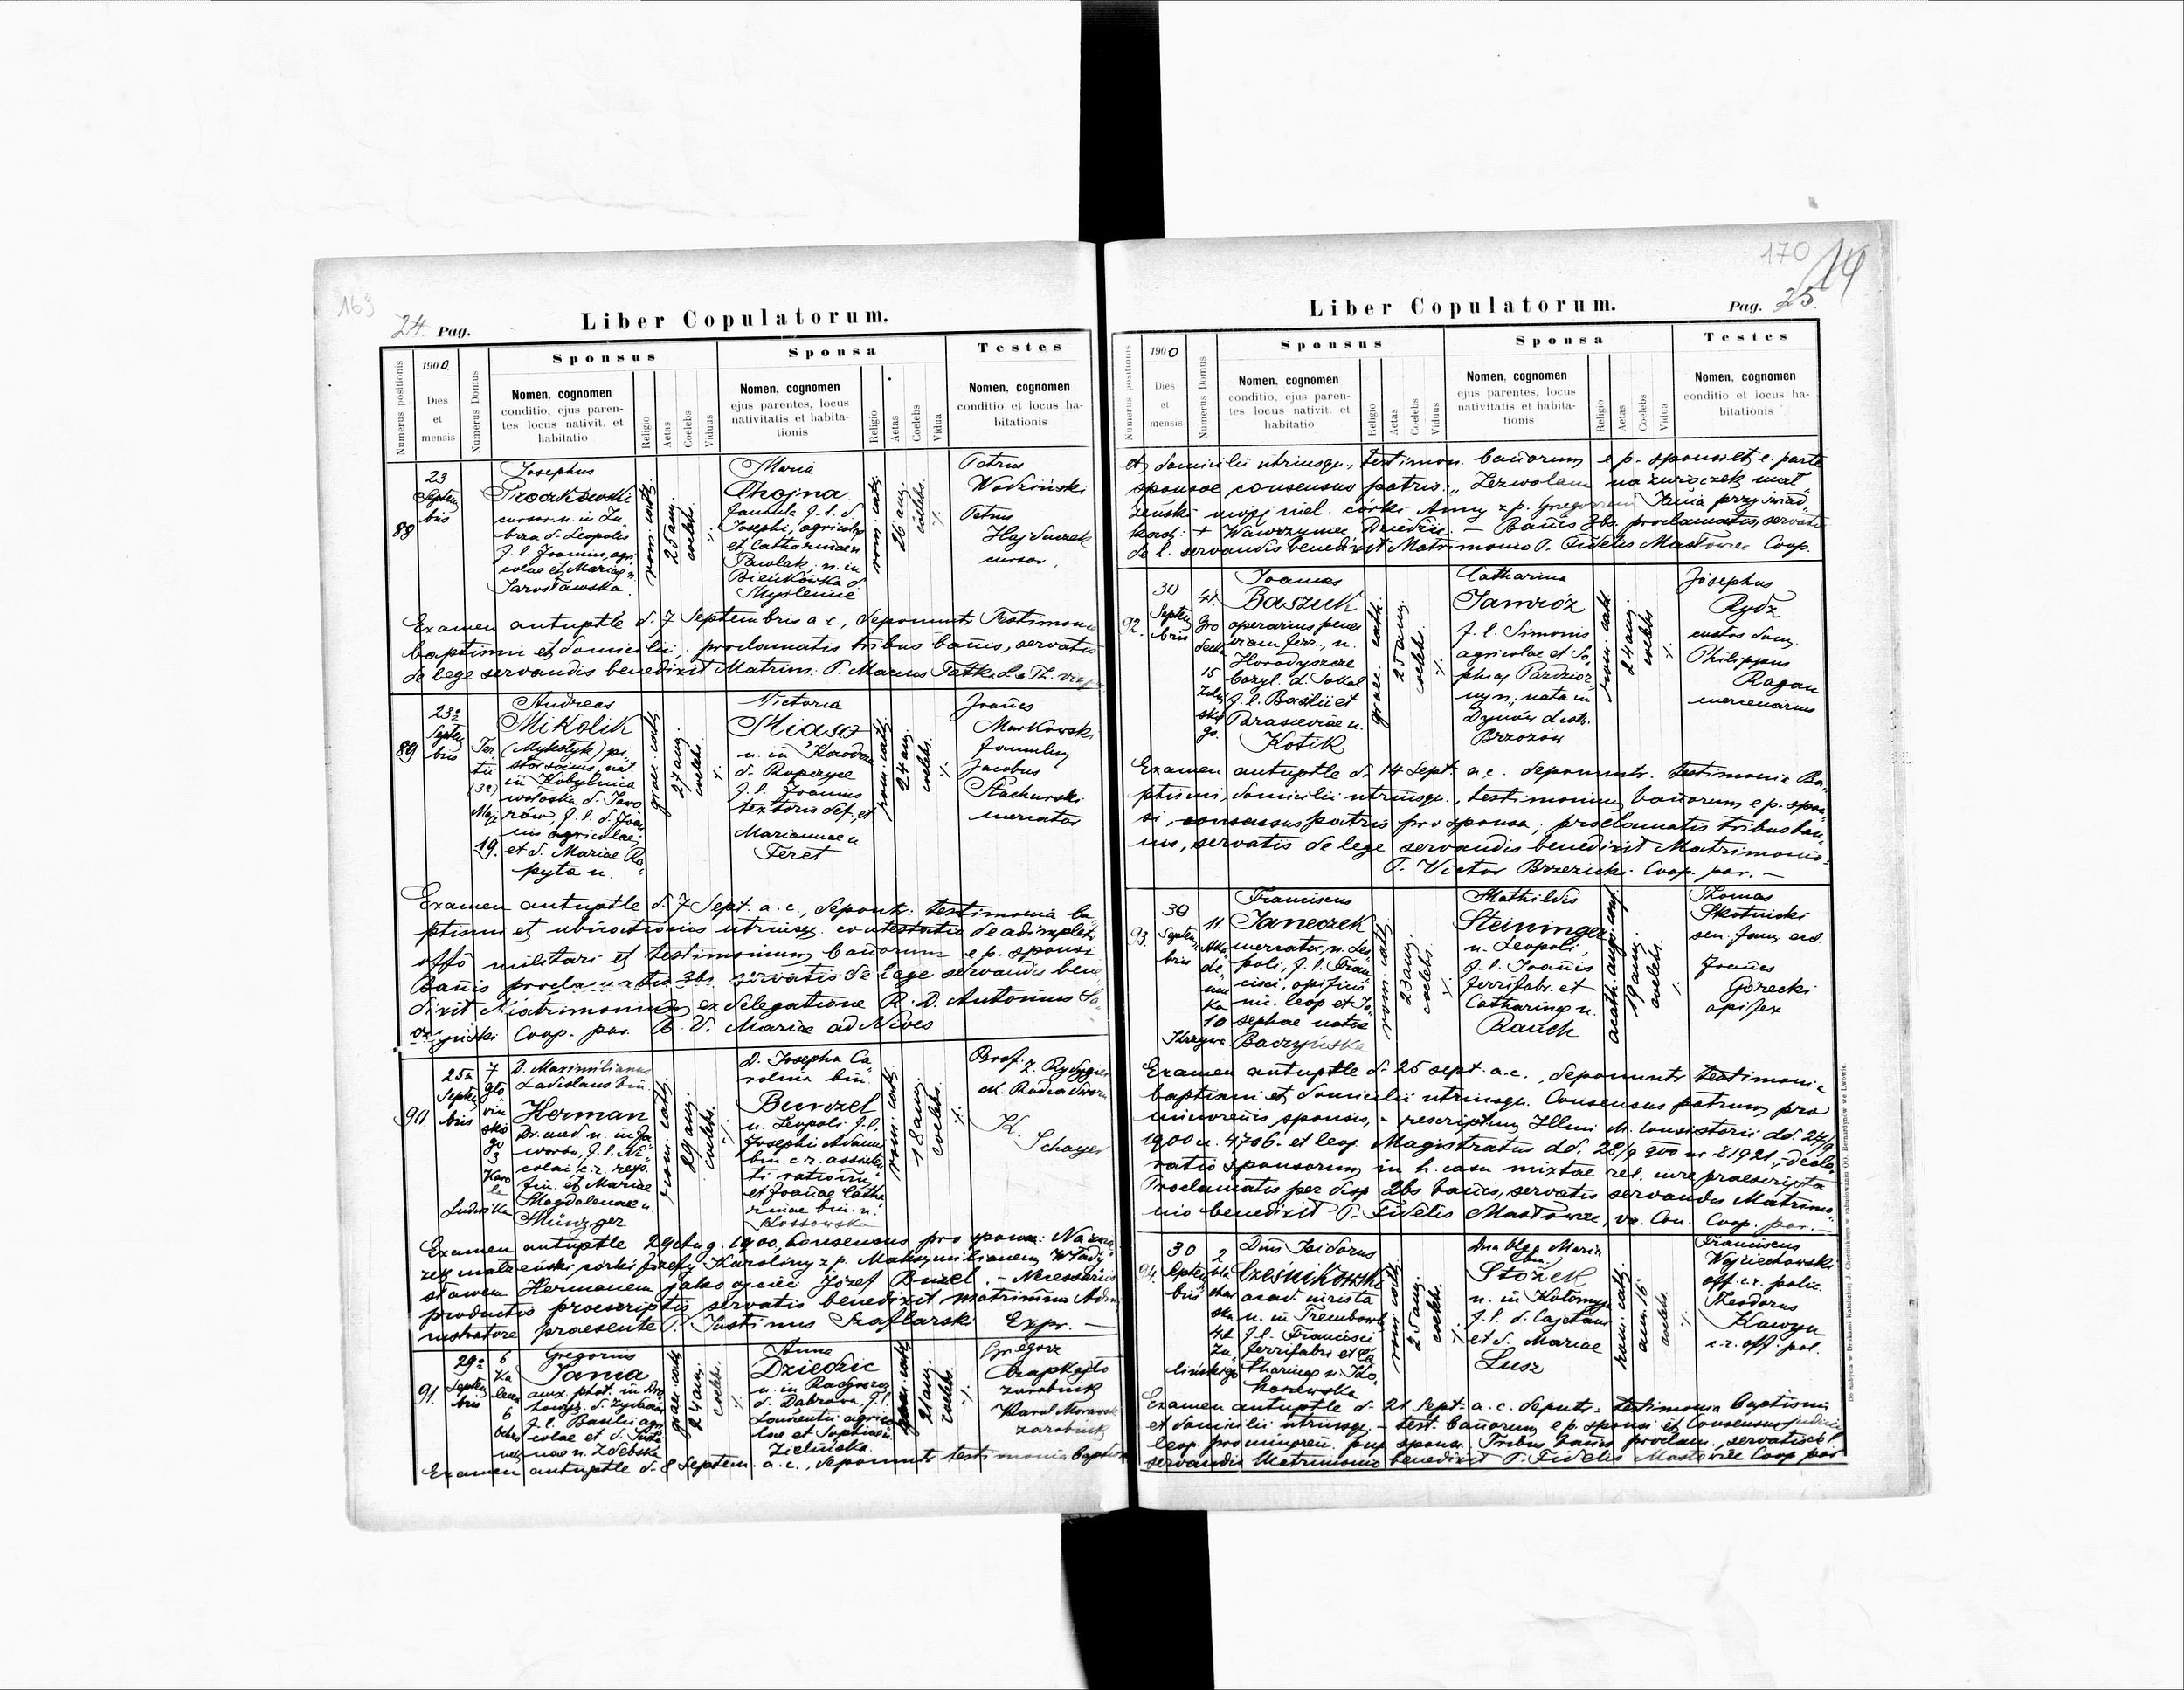 169
24. Pag.
Liber Copulatorum.
Numerus positionis
1900.
Dies
et
mensis
Numerus Domus
Sponsus
Nomen, cognomen
conditio, ejus paren-
tes locus nativit. et
habitatio
Religio
Aetas
Coelebs
Viduus
Sponsa
Nomen, cognomen
ejus parentes, locus
nativitatis et habita-
tionis
Religio
Aetas
Coelebs
Vidua
Testes
Nomen, cognomen
conditio et locus ha-
bitationis
88
23
Septem
bris
Josephus
Proczkowski
cursor n. in Lu
bza d. Leopolis
f. l. Joannis, agri
colae et Mariae n.
Jarosławska.
rom. cath.
25 ann.
coelebs.
Maria
Chojna
famula f. l. d.
Josephi, agricolae
et Catharinae n.
Pawlak, n. in
Bieńkówka d.
Myślenice
rom. cath.
26 ann.
coelebs.
Petrus
Wodziński
Petrus
Hajduczek
cursor.
Examen antuptle d. 7 Septembris a c., deponunt Testimonia
baptismi et domicilii, proclamatis tribus bannis, servatis
de lege servandis benedixit Matrim. P. Marcus
89
23a
Septem
bris
Ter
tii
(3a)
Maji
19.
Andreas
Mikolik
(Mykołyk) pi
stor socius, nat.
in Kobylnica
wołoska d. Jawo
rów, f. l. d. Joan
nis agricolae,
et d. Mariae Ko
pyta n.
graec. cath.
27 ann.
coelebs.
Victoria
Miąso
n. in
d. Ropczyce
f. l. Joannis
textoris def. et
Mariannae n.
Feret
rom. cath.
24 ann.
coelebs.
Joanes
Markowski
famulus
Jacobus
Stachurski
mercator
Examen antuptle d. 7 Sept. a. c., deponts: testimonia ba
ptismi et ubicationis utriusq. contestatio de adimpleto
offo militari et testimonium banorum e p. sponsi
Banis proclamatis 3bs servatis de lege servandis bene
dixit Matrimonium ex delegatione R. D. Antonius
Coop. par. B. V. Mariae ad Nives
90
25a
Septem
bris
7
gło
wiń
skie
go
3
Karo
la
Ludwika
D. Maximilianus
Ladislaus bin.
Herman
Dr. med. n. in Ja
worów, f. l. Ni
colai c. r. resp.
fin. et Mariae
Magdalenae n.
Münzger
rom. cath.
29 ann.
coelebs.
D. Josepha Ca
rolina bin.
Burzel
n. Leopoli f. l.
Josephi Adami
bin. c. r. assisten
ti rationu
et Joanae Catha
rinae bin. n.
Kossowska
rom. cath.
18 ann.
coelebs.
Prof. Z. Rydygier
ck. Radca Dworu
K.
Schayer
Examen antuptle 29 Aug. 1900, Consensus pro sponsa: Na zwią
zek małżeński córki Józefy Karoliny z p. Maksymilianem Włady
sławem Hermanem jako ojciec Józef Buzel. - Necessariis
productis praescriptis servatis benedixit matrimonio Admi
nistratore praesente P. Justinus Szaflarski Expr. -
91.
29a
Septem
bris
6
Ka
lecza
6
Ochro
nek
Gregorius
Tania
aux. phot. in Dro
howyż. d. Żydaczów
f. l. Basilii agri
colae et d. Justi
nae n. Zdebska
graec. cath.
24 ann.
coelebs.
Anna
Dziedzic
n. in Radgoszcz
d. Dąbrowa, f. l.
Laurentii agrico
lae et Sophiae n.
Zielińska.
rom. cath.
21 ann.
coelebs.
Grzegorz
Czapkajło
zarobnik
Karol Morawski
zarobnik
Examen antuptle d. 8 Septem. a. c., deponunts testimonia baptismi
170
14
Liber Copulatorum.
Pag. 25.
Numerus positionis
1900
Dies
et
mensis
Numerus Domus
Sponsus
Nomen, cognomen
conditio, ejus paren-
tes locus nativit. et
habitatio
Religio
Aetas
Coelebs
Viduus
Sponsa
Nomen, cognomen
ejus parentes, locus
nativitatis et habita-
tionis
Religio
Aetas
Coelebs
Vidua
Testes
Nomen, cognomen
conditio et locus ha-
bitationis
et domicilii utriusqu., testimon. banorum e p. sponsi et e parte
sponsae consensus patris: „Zezwalam na związek mał-
żeński mojej niel. córki Anny z p. Gregorem Tania przy świad
kach: + Wawrzyniec Dziedzic. - Banis 3bs. proclamatis, servatis
de l. servandis benedixit Matrimonio P. Fidelis Masłowiec Coop.
92.
30
Septem
bris
41.
Gro
decka
15
Żółkiew
skie
go.
Joannes
Baszuk
operarius penes
viam ferr., n.
Horodyszcze
bazyl. d. Sokal
f. l. Basilii et
Parasceviae n.
Kotik
graec. cath.
25 ann.
coelebs.
Catharina
Jamróz
f. l. Simonis
agricolae et So
phiae Paździor
ny n., nata in
Dynów distr.
Brzozów
rom. cath.
24 ann.
coelebs
Josephus
Rydz
custos dom.
Philippus
Ragan
mercenarius
Examen antuptle d. 14 Sept. a. c. deponunts. testimonia Ba
ptismi, domicilii utriusqu., testimonium banorum e p. spon
si, consensus patris pro sponsa; proclamatis tribus ban
nis, servatis de lege servandis benedixit Matrimonio.
P. Victor Brzezicki Coop. par. -
93.
30
Septem
bris
11.
Aka
de
mic
ka
10
Skrzywa
Franciscus
Janeczek
mercator, n. Leo
poli, f. l. Fran
cisci, opificis
nic. leop et Jo
sephae natae
Baczyńska
rom. cath.
23 ann.
coelebs.
Mathildis
Steininger
n. Leopoli,
f. l. Joanis
ferrifabr. et
Catharinae n.
Rauch
acath. aug. conf.
19 ann.
coelebs.
Thomas
Skotnicki
sen. fam. ard.
Joanes
Górecki
opifex
Examen antuptle d. 25 sept. a. c., deponunts testimonia
baptismi et domicilii utriusqu. Consensus patrum pro
minorenis sponsis, - rescriptum Illmi M. Consistorii dd. 27/9
1900 n. 4706. et leop. Magistratus dd. 28/9 900 nr 81921, - decla
ratio sponsorum in h. casu mixtae rel. iure praescripta
Proclamatis per disp 2bs banis, servatis servandis Matrimo
nio benedixit P. Fidelis Masłowiec, Coop. par. -
94.
30
Septem
bris
2
bla
char
ska
41
Zu
lińskiego
Dnus Isidorus
Cześnikowski
acad. iurista
n. in Trembowl
f. l. Francisci
ferrifabri et Ca
tharinae n. Ko
howska
rom. cath.
25 ann.
coelebs.
Dna Olga Maria
bin.
Stożek
n. in Kołomyja
f. l. d. Cajetani
et d. Mariae
Lusz
rom. cath.
ann. 16
coelebs.
Franciscus
Wojciechowski
off. c. r. polic.
Theodorus
Kawyn
c. r. off. pol.
Examen antuptle d. 21 Sept. a. c. deponts. testimonia baptismi
et domicilii utriusqu. - test. banorum e p. sponsi et Consensus judicii
leop. pro minoren. sponsa. Tribus banis proclam., servatis de l.
servandis Matrimonio benedixit P. Fidelis Masłowiec Coop par
Do nabycia w Drukarni Katolickiej J. Chęcińskiego w zabudowaniu OO. Bernardynów we Lwowie.